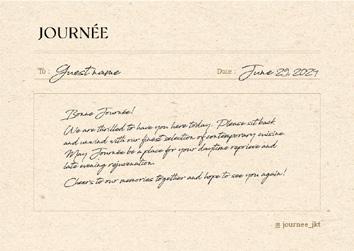 JOURNÉE
To : Guest name
Date : June 29, 2024
Bonne Journée!
We are thrilled to have you here today. Please sit back
and unwind with our finest selection of contemporary cuisine.
May Journée be a place for your daytime reprieve and
late evening rejuvenation.
Cheers to our memories together and hope to see you again!
journee_jkt